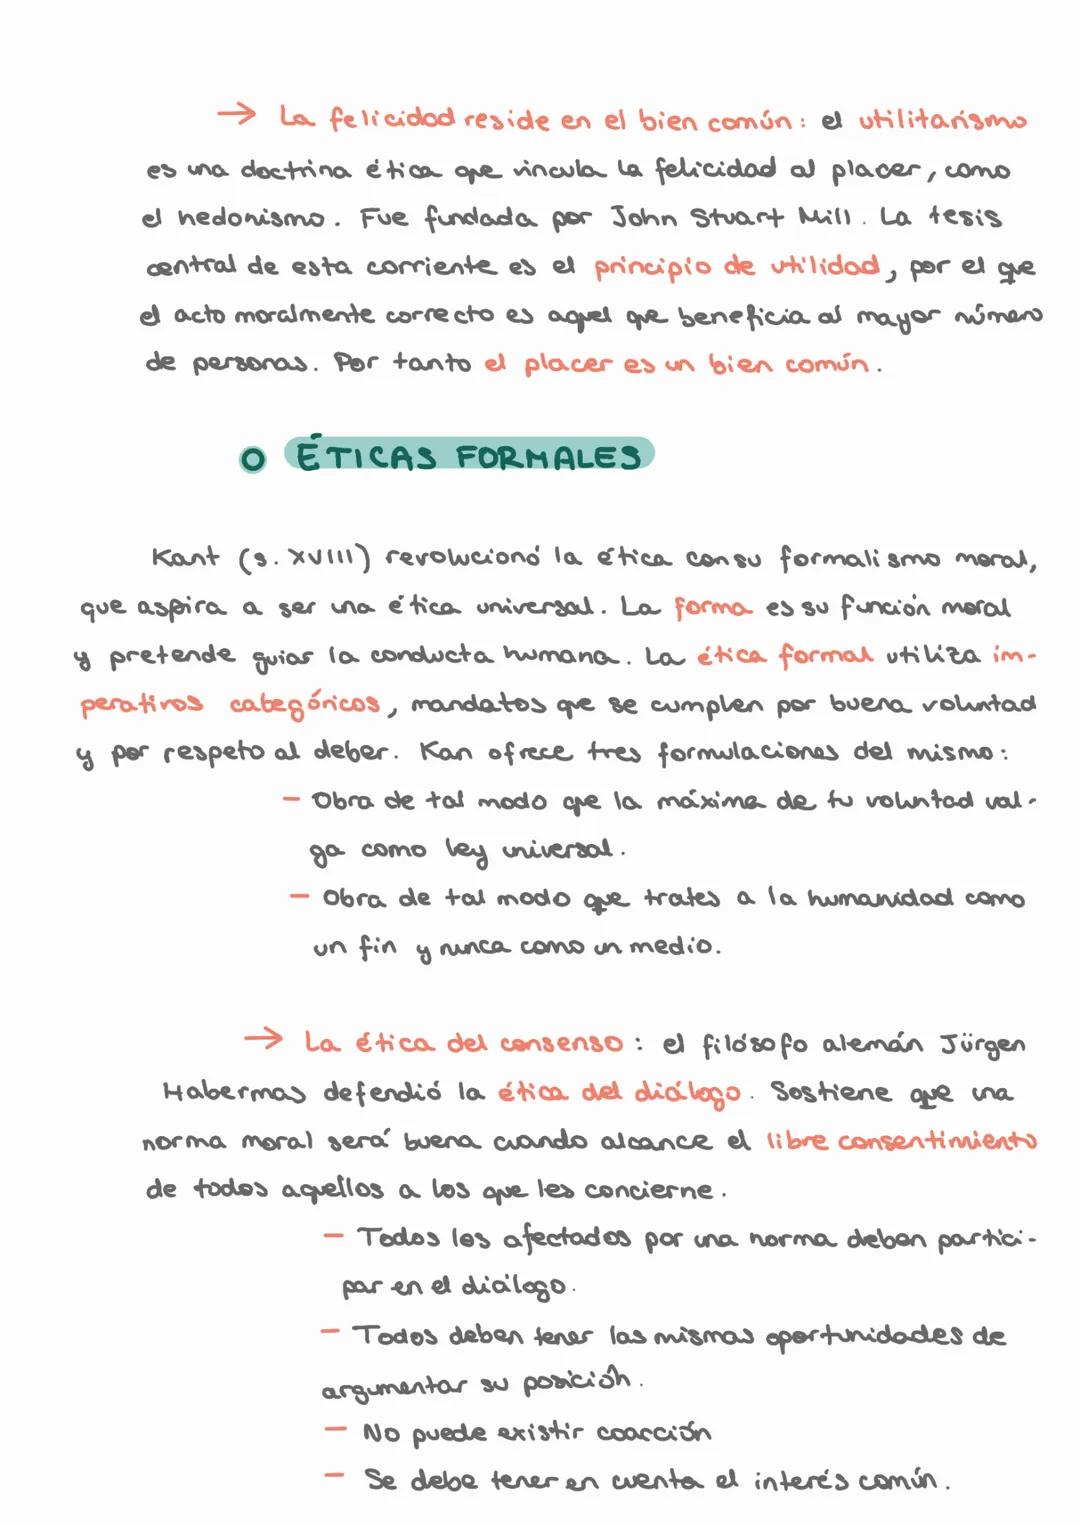 → La felicidad reside en el bien común: el utilitarismo
es una doctrina ética que vincula la felicidad al placer, como
el hedonismo. Fue fundada por John Stuart Mill. La tesis
central de esta corriente es el principio de utilidad, por el que
el acto moralmente correcto es aquel que beneficia al mayor número
de personas. Por tanto el placer es un bien común.
o ÉTICAS FORMALES
Kant (s. XVIII) revolucionó la ética con su formalismo moral,
que aspira a ser una ética universal. La forma es su función moral
y pretende guiar la conducta humana. La ética formal utiliza im-
perativos categóricos, mandatos que se cumplen por buena voluntad
y por respeto al deber. Kan ofrece tres formulaciones del mismo:
- Obra de tal modo que la máxima de tu voluntad val-
ga como ley universal.
- Obra de tal modo que trates a la humanidad como
un fin y nunca como un medio.
→ La ética del consenso: el filósofo alemán Jürgen
Habermas defendió la ética del diálogo. Sostiene que una
norma moral será buena cuando alcance el libre consentimiento
de todos aquellos a los que les concierne.
- Todos los afectados por una norma deben partici-
par en el diálogo.
- Todos deben tener las mismas oportunidades de
argumentar su posición.
- No puede existir coacción
- Se debe tener en cuenta el interés común.